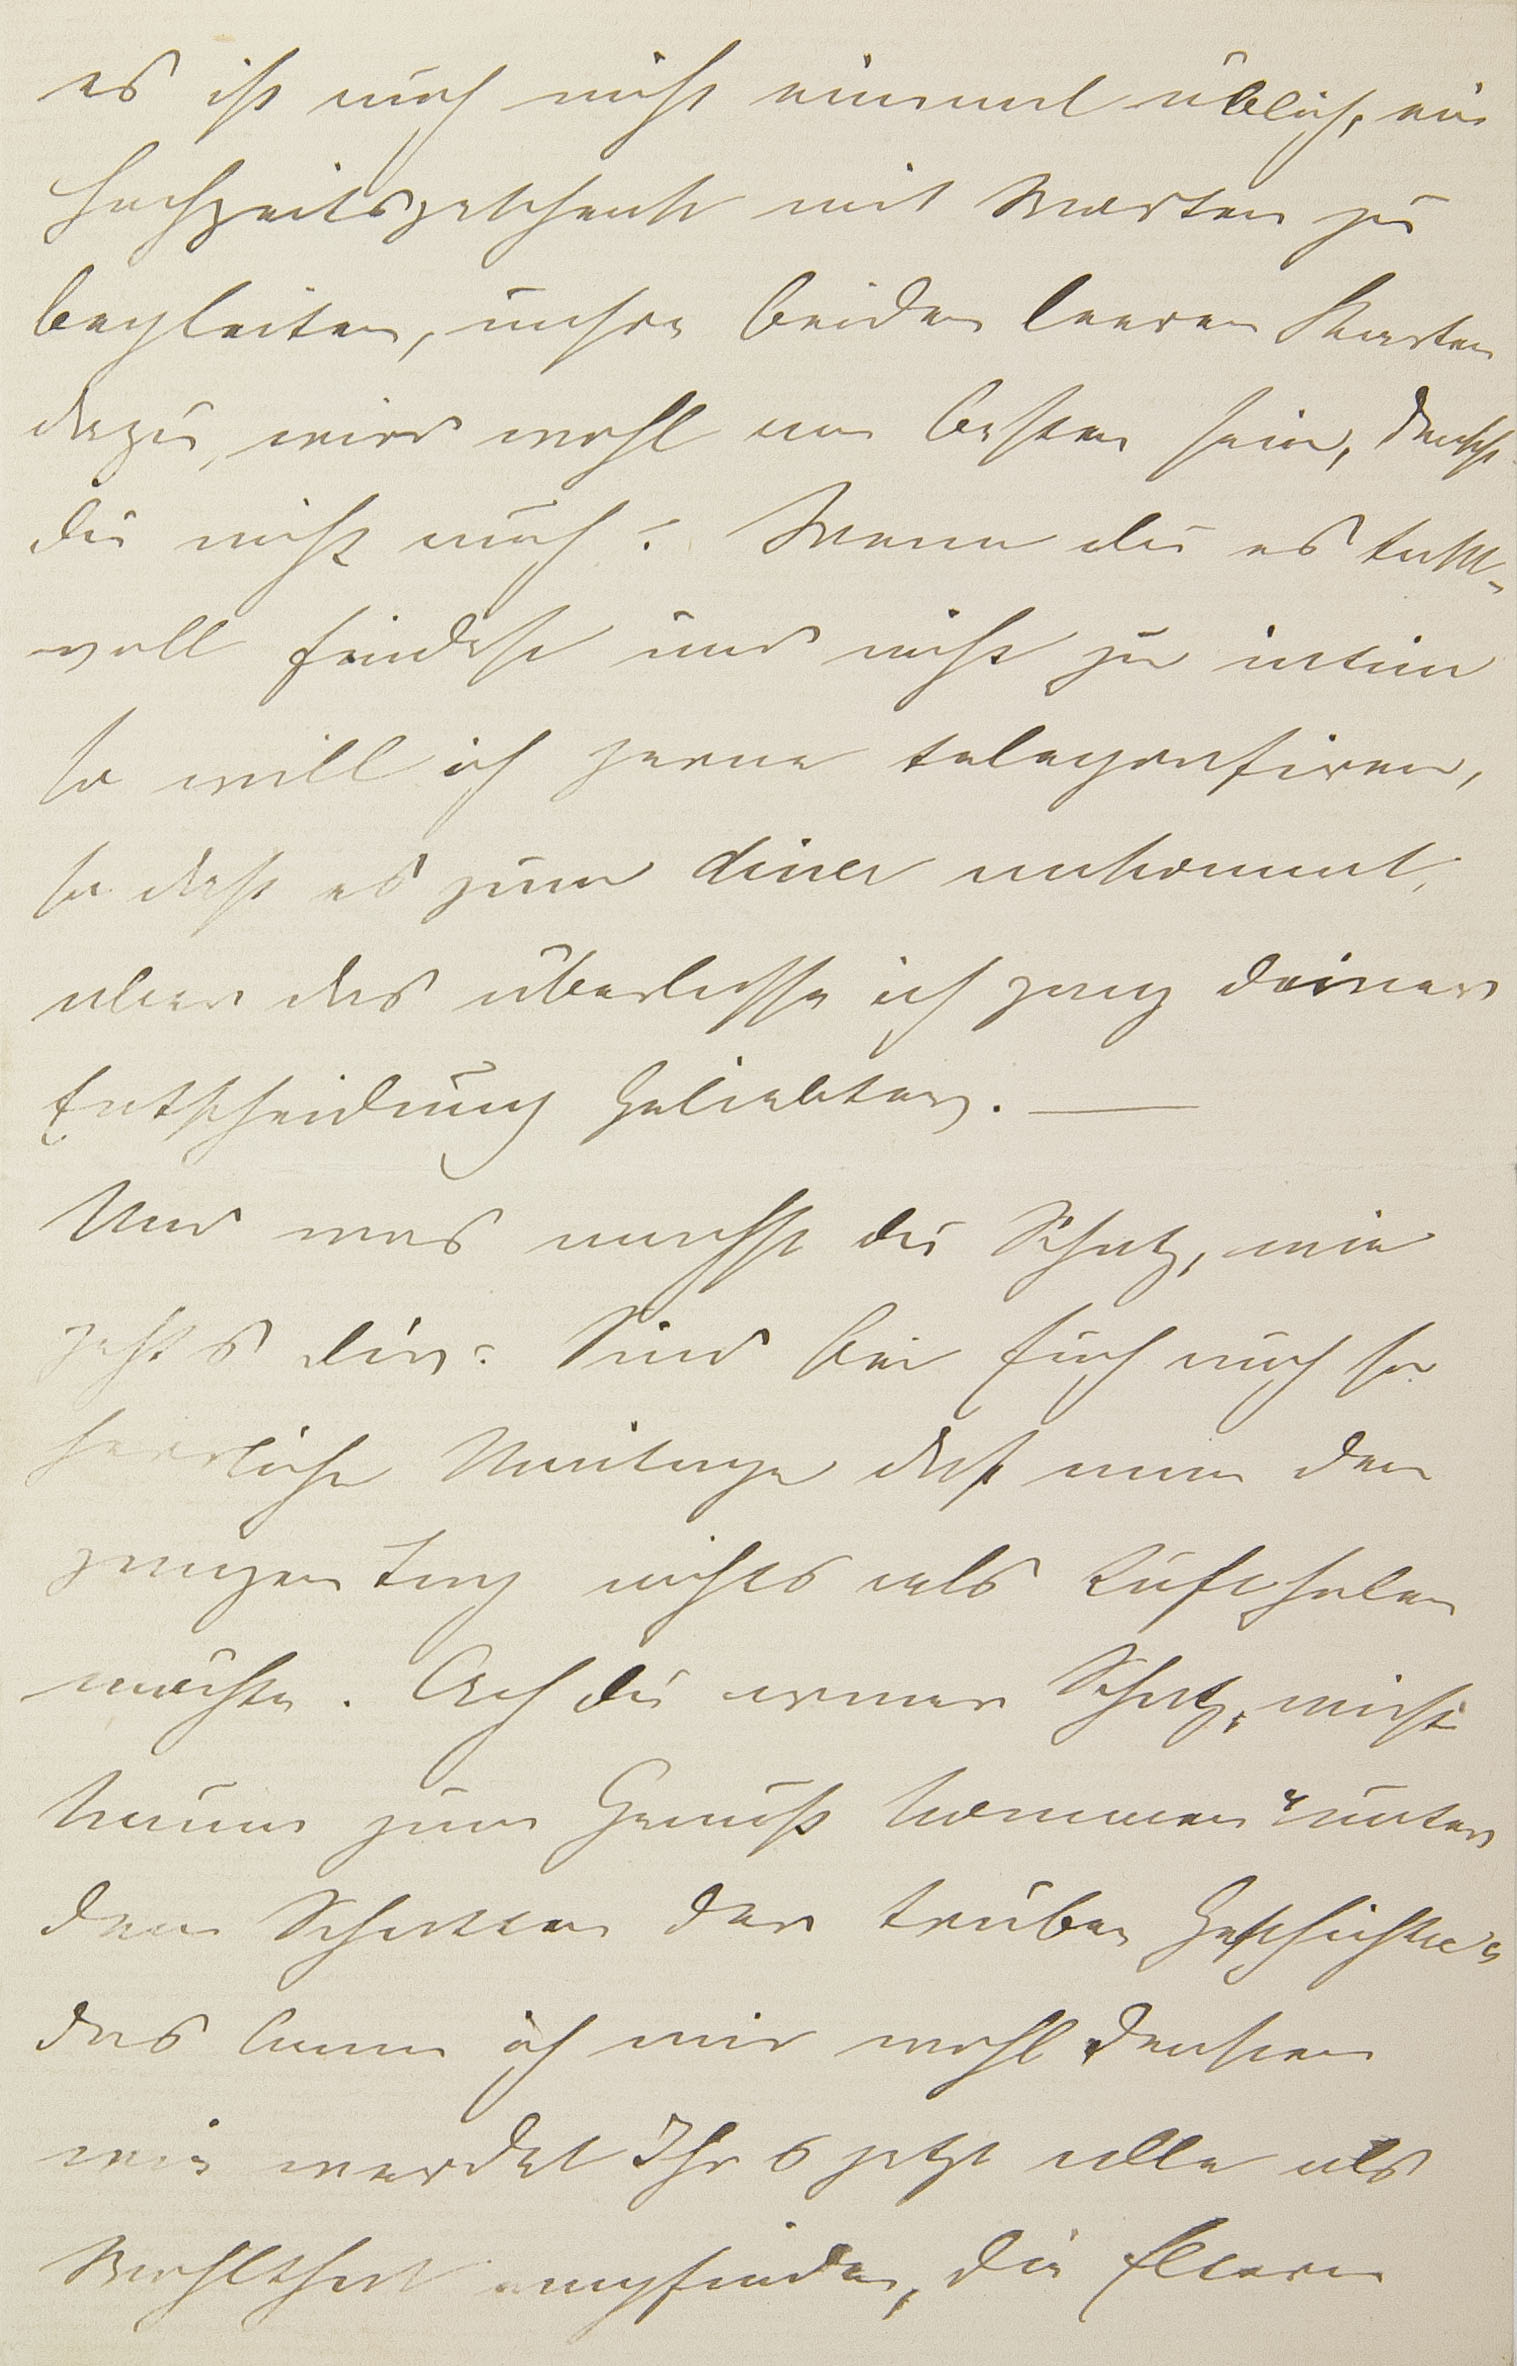 es ist auch nicht einmal üblich, ein
Hochzeitsgeschenk mit Worten zu
begleiten, unsre beiden leeren Karten
dazu, wird wohl am besten sein, denkst
du nicht auch? Wenn du es takt-
voll findest und nicht zu intim
so will ich gerne telegrafiren,
so daß es zum diner ankommt,
aber das überlasse ich ganz deiner
Entscheidung Geliebter. —
Und was machst du Schatz, wie
geht's dir? Sind bei Euch auch so
herrliche Maitage daß man den
ganzen Tag nichts als Luft holen
möchte. Ach du armer Schatz, wirst
kaum zum Genuß kommen unter
dem Schatten der trüben Geschichten
das kann ich mir wohl denken
wie werdet Ihr's jetzt alle als
Wohlthat empfinden, die Eltern